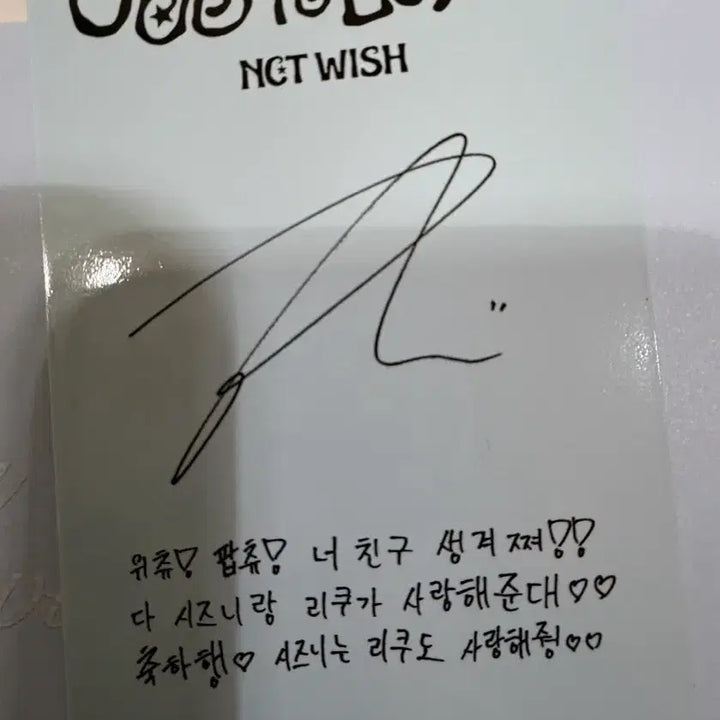 NCT WISH
위츄♡ 팝츄♡ 너 친구 생겨쪄♡♡
다 시즈니랑 리쿠가 사랑해준대♡♡
축하행♡ 시즈니는 리쿠도 사랑해줭♡♡